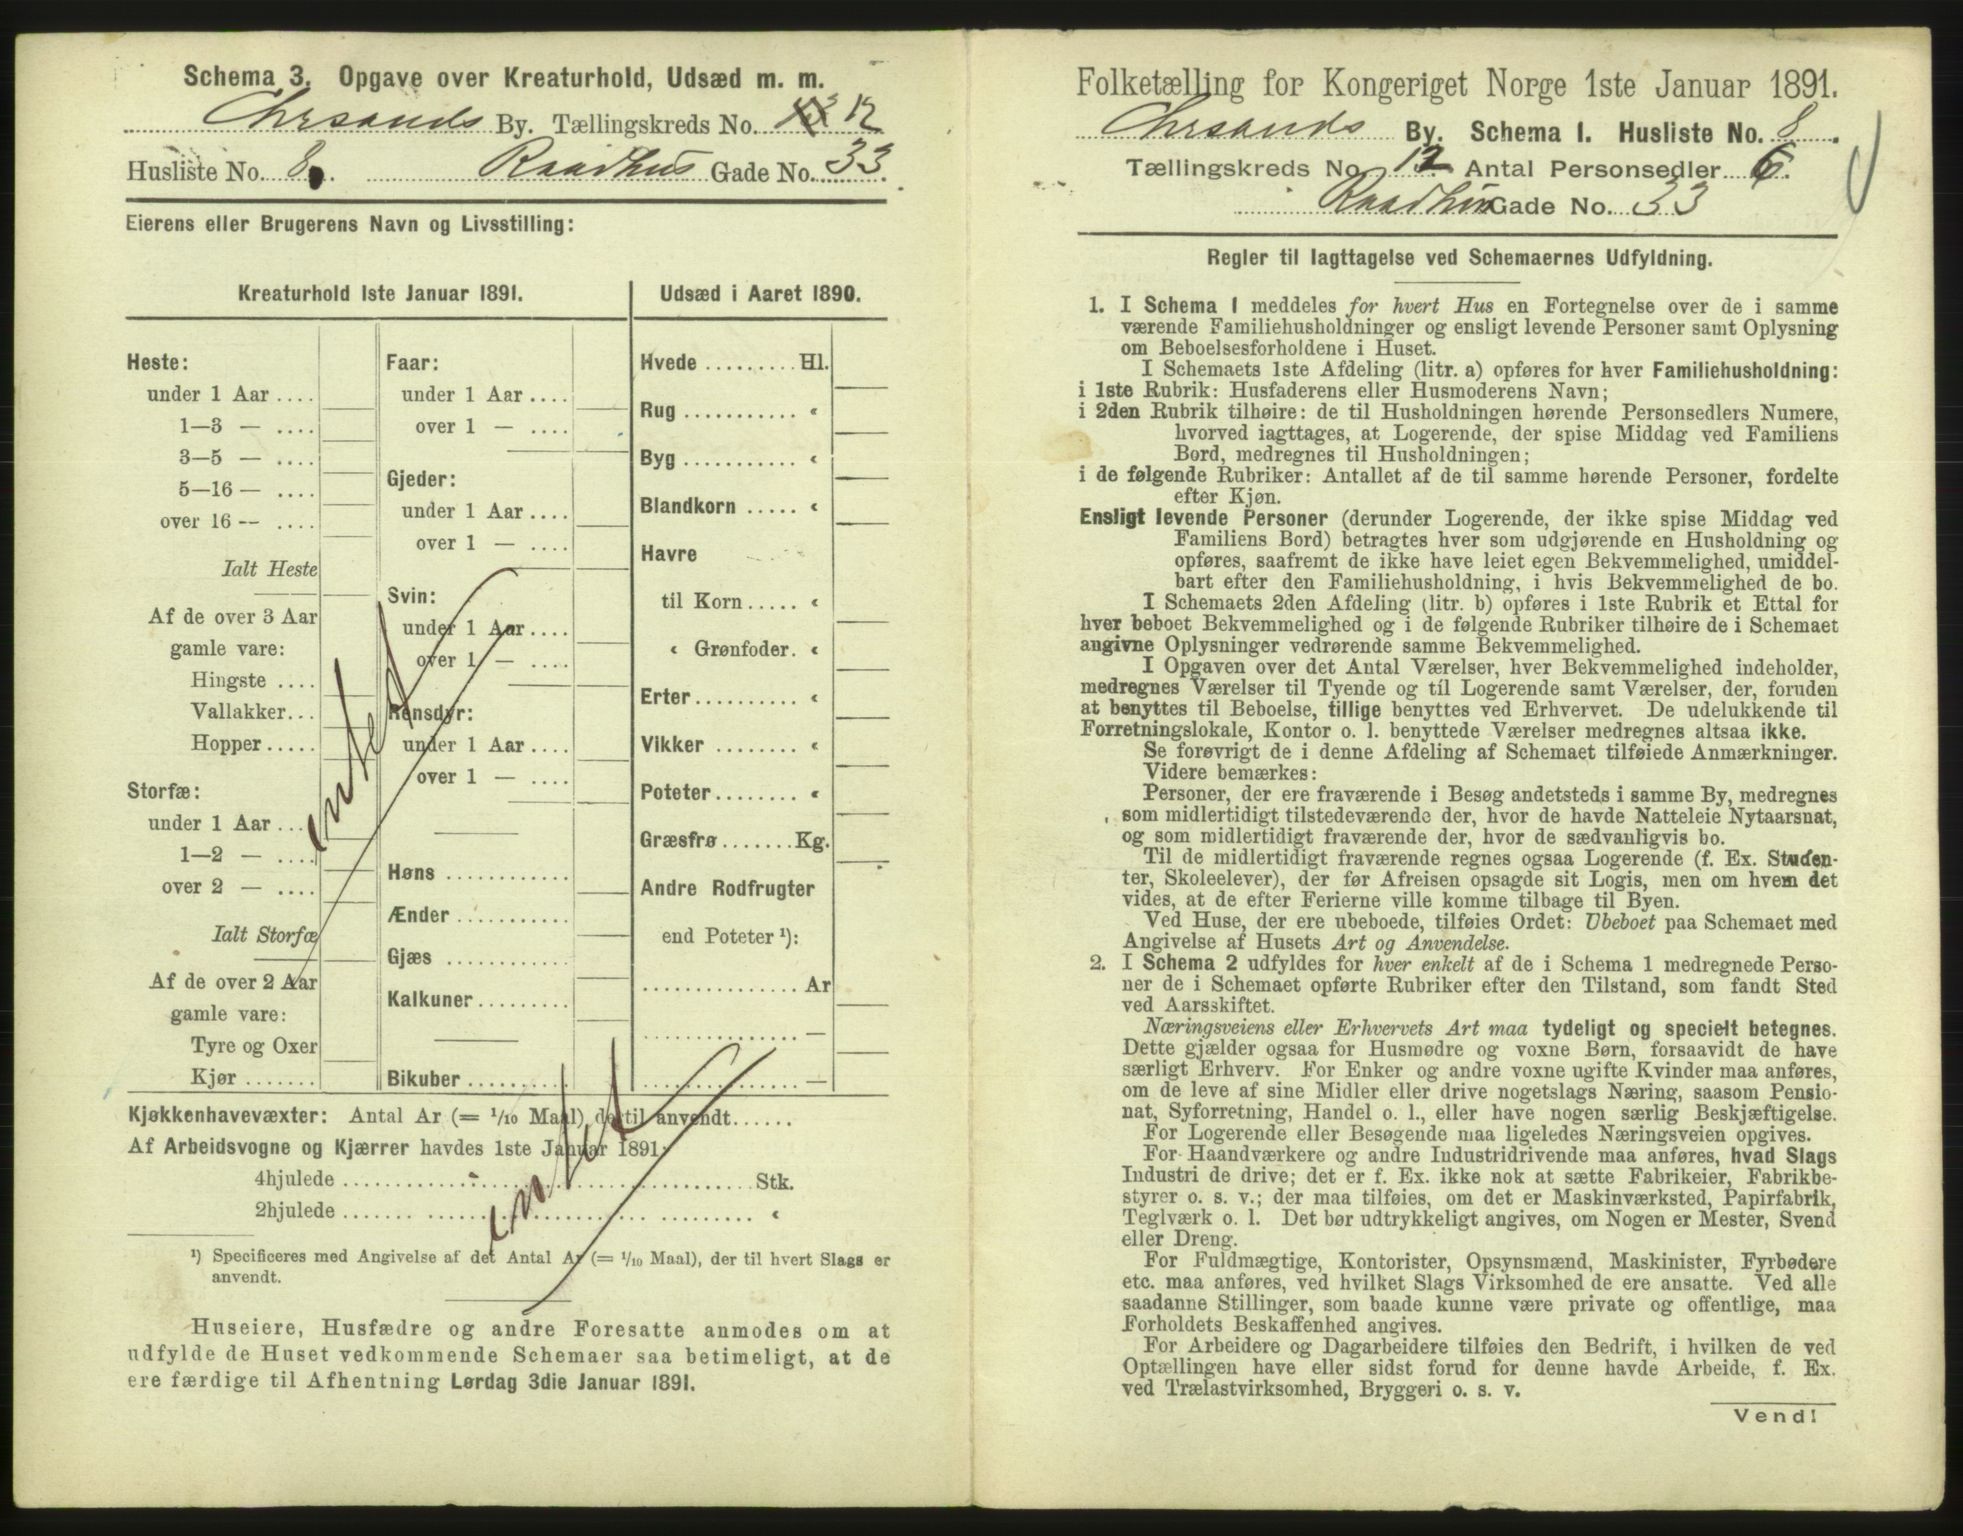 Schema 3. Opgave over Kreaturhold, Udsæd m. m.
Chrsands By. Tællingskreds No. 12
Husliste No. 8. Raadhus Gade No. 33.
Eierens eller Brugerens Navn og Livsstilling:
Kreaturhold 1ste Januar 1891.
Heste:
under 1 Aar ....
1—3 — ....
3—5 — ....
5—16 — ....
over 16 -- ....
Ialt Heste
Af de over 3 Aar
gamle vare:
Hingste ....
Vallakker...
Hopper.....
Storfæ:
under 1 Aar ...
1—2 — ....
over 2 — ....
Ialt Storfæ
Af de over 2 Aar
gamle vare:
Tyre og Oxer
Kjør .......
intet
Faar:
under 1 Aar ....
over 1 — ....
Gjeder:
under 1 Aar ....
over 1 — ....
Svin:
under 1 Aar ....
over 1 — ....
Rensdyr:
under 1 Aar ....
over 1 — ....
Høns ............
Ænder ...........
Gjæs ............
Kalkuner.........
Bikuber ..........
Udsæd i Aaret 1890.
Hvede ......... Hl.
Rug ........... «
Byg ........... «
Blandkorn ..... «
Havre
til Korn ..... «
« Grønfoder. «
Erter .......... «
Vikker ......... «
Poteter ........ «
Græsfrø ....... Kg.
Andre Rodfrugter
end Poteter ¹):
............... Ar
............... —
............... —
Kjøkkenhavevæxter: Antal Ar (= 1/10 Maal) dertil anvendt......
Af Arbeidsvogne og Kjærrer havdes 1ste Januar 1891:
4hjulede ........................................ Stk.
2hjulede ........................................ «
intet
¹) Specificeres med Angivelse af det Antal Ar (= 1/10 Maal), der til hvert Slags er
anvendt.
Huseiere, Husfædre og andre Foresatte anmodes om at
udfylde de Huset vedkommende Schemaer saa betimeligt, at de
ere færdige til Afhentning Lørdag 3die Januar 1891.
Folketælling for Kongeriget Norge 1ste Januar 1891.
Chrsands By. Schema 1. Husliste No. 8.
Tællingskreds No. 12 Antal Personsedler 6.
Raadhus Gade No. 33
Regler til Iagttagelse ved Schemaernes Udfyldning.
1. I Schema 1 meddeles for hvert Hus en Fortegnelse over de i samme
værende Familiehusholdninger og ensligt levende Personer samt Oplysning
om Beboelsesforholdene i Huset.
I Schemaets 1ste Afdeling (litr. a) opføres for hver Familiehusholdning:
i 1ste Rubrik: Husfaderens eller Husmoderens Navn;
i 2den Rubrik tilhøire: de til Husholdningen hørende Personsedlers Numere,
hvorved iagttages, at Logerende, der spise Middag ved Familiens
Bord, medregnes til Husholdningen;
i de følgende Rubriker: Antallet af de til samme hørende Personer, fordelte
efter Kjøn.
Ensligt levende Personer (derunder Logerende, der ikke spise Middag ved
Familiens Bord) betragtes hver som udgjørende en Husholdning og
opføres, saafremt de ikke have leiet egen Bekvemmelighed, umiddel-
bart efter den Familiehusholdning, i hvis Bekvemmelighed de bo.
I Schemaets 2den Afdeling (litr. b) opføres i 1ste Rubrik et Ettal for
hver beboet Bekvemmelighed og i de følgende Rubriker tilhøire de i Schemaet
angivne Oplysninger vedrørende samme Bekvemmelighed.
I Opgaven over det Antal Værelser, hver Bekvemmelighed indeholder,
medregnes Værelser til Tyende og til Logerende samt Værelser, der, foruden
at benyttes til Beboelse, tillige benyttes ved Erhvervet. De udelukkende til
Forretningslokale, Kontor o. l. benyttede Værelser medregnes altsaa ikke.
Se forøvrigt de i denne Afdeling af Schemaet tilføiede Anmærkninger.
Videre bemærkes:
Personer, der ere fraværende i Besøg andetsteds i samme By, medregnes
som midlertidigt tilstedeværende der, hvor de havde Natteleie Nytaarsnat,
og som midlertidigt fraværende der, hvor de sædvanligvis bo.
Til de midlertidigt fraværende regnes ogsaa Logerende (f. Ex. Studen-
ter, Skoleelever), der før Afreisen opsagde sit Logis, men om hvem det
vides, at de efter Ferierne ville komme tilbage til Byen.
Ved Huse, der ere ubeboede, tilføies Ordet: Ubeboet paa Schemaet med
Angivelse af Husets Art og Anvendelse.
2. I Schema 2 udfyldes for hver enkelt af de i Schema 1 medregnede Perso-
ner de i Schemaet opførte Rubriker efter den Tilstand, som fandt Sted
ved Aarsskiftet.
Næringsveiens eller Erhvervets Art maa tydeligt og specielt betegnes.
Dette gjælder ogsaa for Husmødre og voxne Børn, forsaavidt de have
særligt Erhverv. For Enker og andre voxne ugifte Kvinder maa anføres,
om de leve af sine Midler eller drive nogetslags Næring, saasom Pensio-
nat, Syforretning, Handel o. l., eller have nogen særlig Beskjæftigelse.
For Logerende eller Besøgende maa ligeledes Næringsveien opgives.
For Haandværkere og andre Industridrivende maa anføres, hvad Slags
Industri de drive; det er f. Ex. ikke nok at sætte Fabrikeier, Fabrikbe-
styrer o. s. v.; der maa tilføies, om det er Maskinværksted, Papirfabrik,
Teglværk o. l. Det bør udtrykkeligt angives, om Nogen er Mester, Svend
eller Dreng.
For Fuldmægtige, Kontorister, Opsynsmænd, Maskinister, Fyrbødere
etc. maa anføres, ved hvilket Slags Virksomhed de ere ansatte. Ved alle
saadanne Stillinger, som baade kunne være private og offentlige, maa
Forholdets Beskaffenhed angives.
For Arbeidere og Dagarbeidere tilføies den Bedrift, i hvilken de ved
Optællingen have eller sidst forud for denne havde Arbeide, f. Ex.
ved Trælastvirksomhed, Bryggeri o. s. v.
Vend!